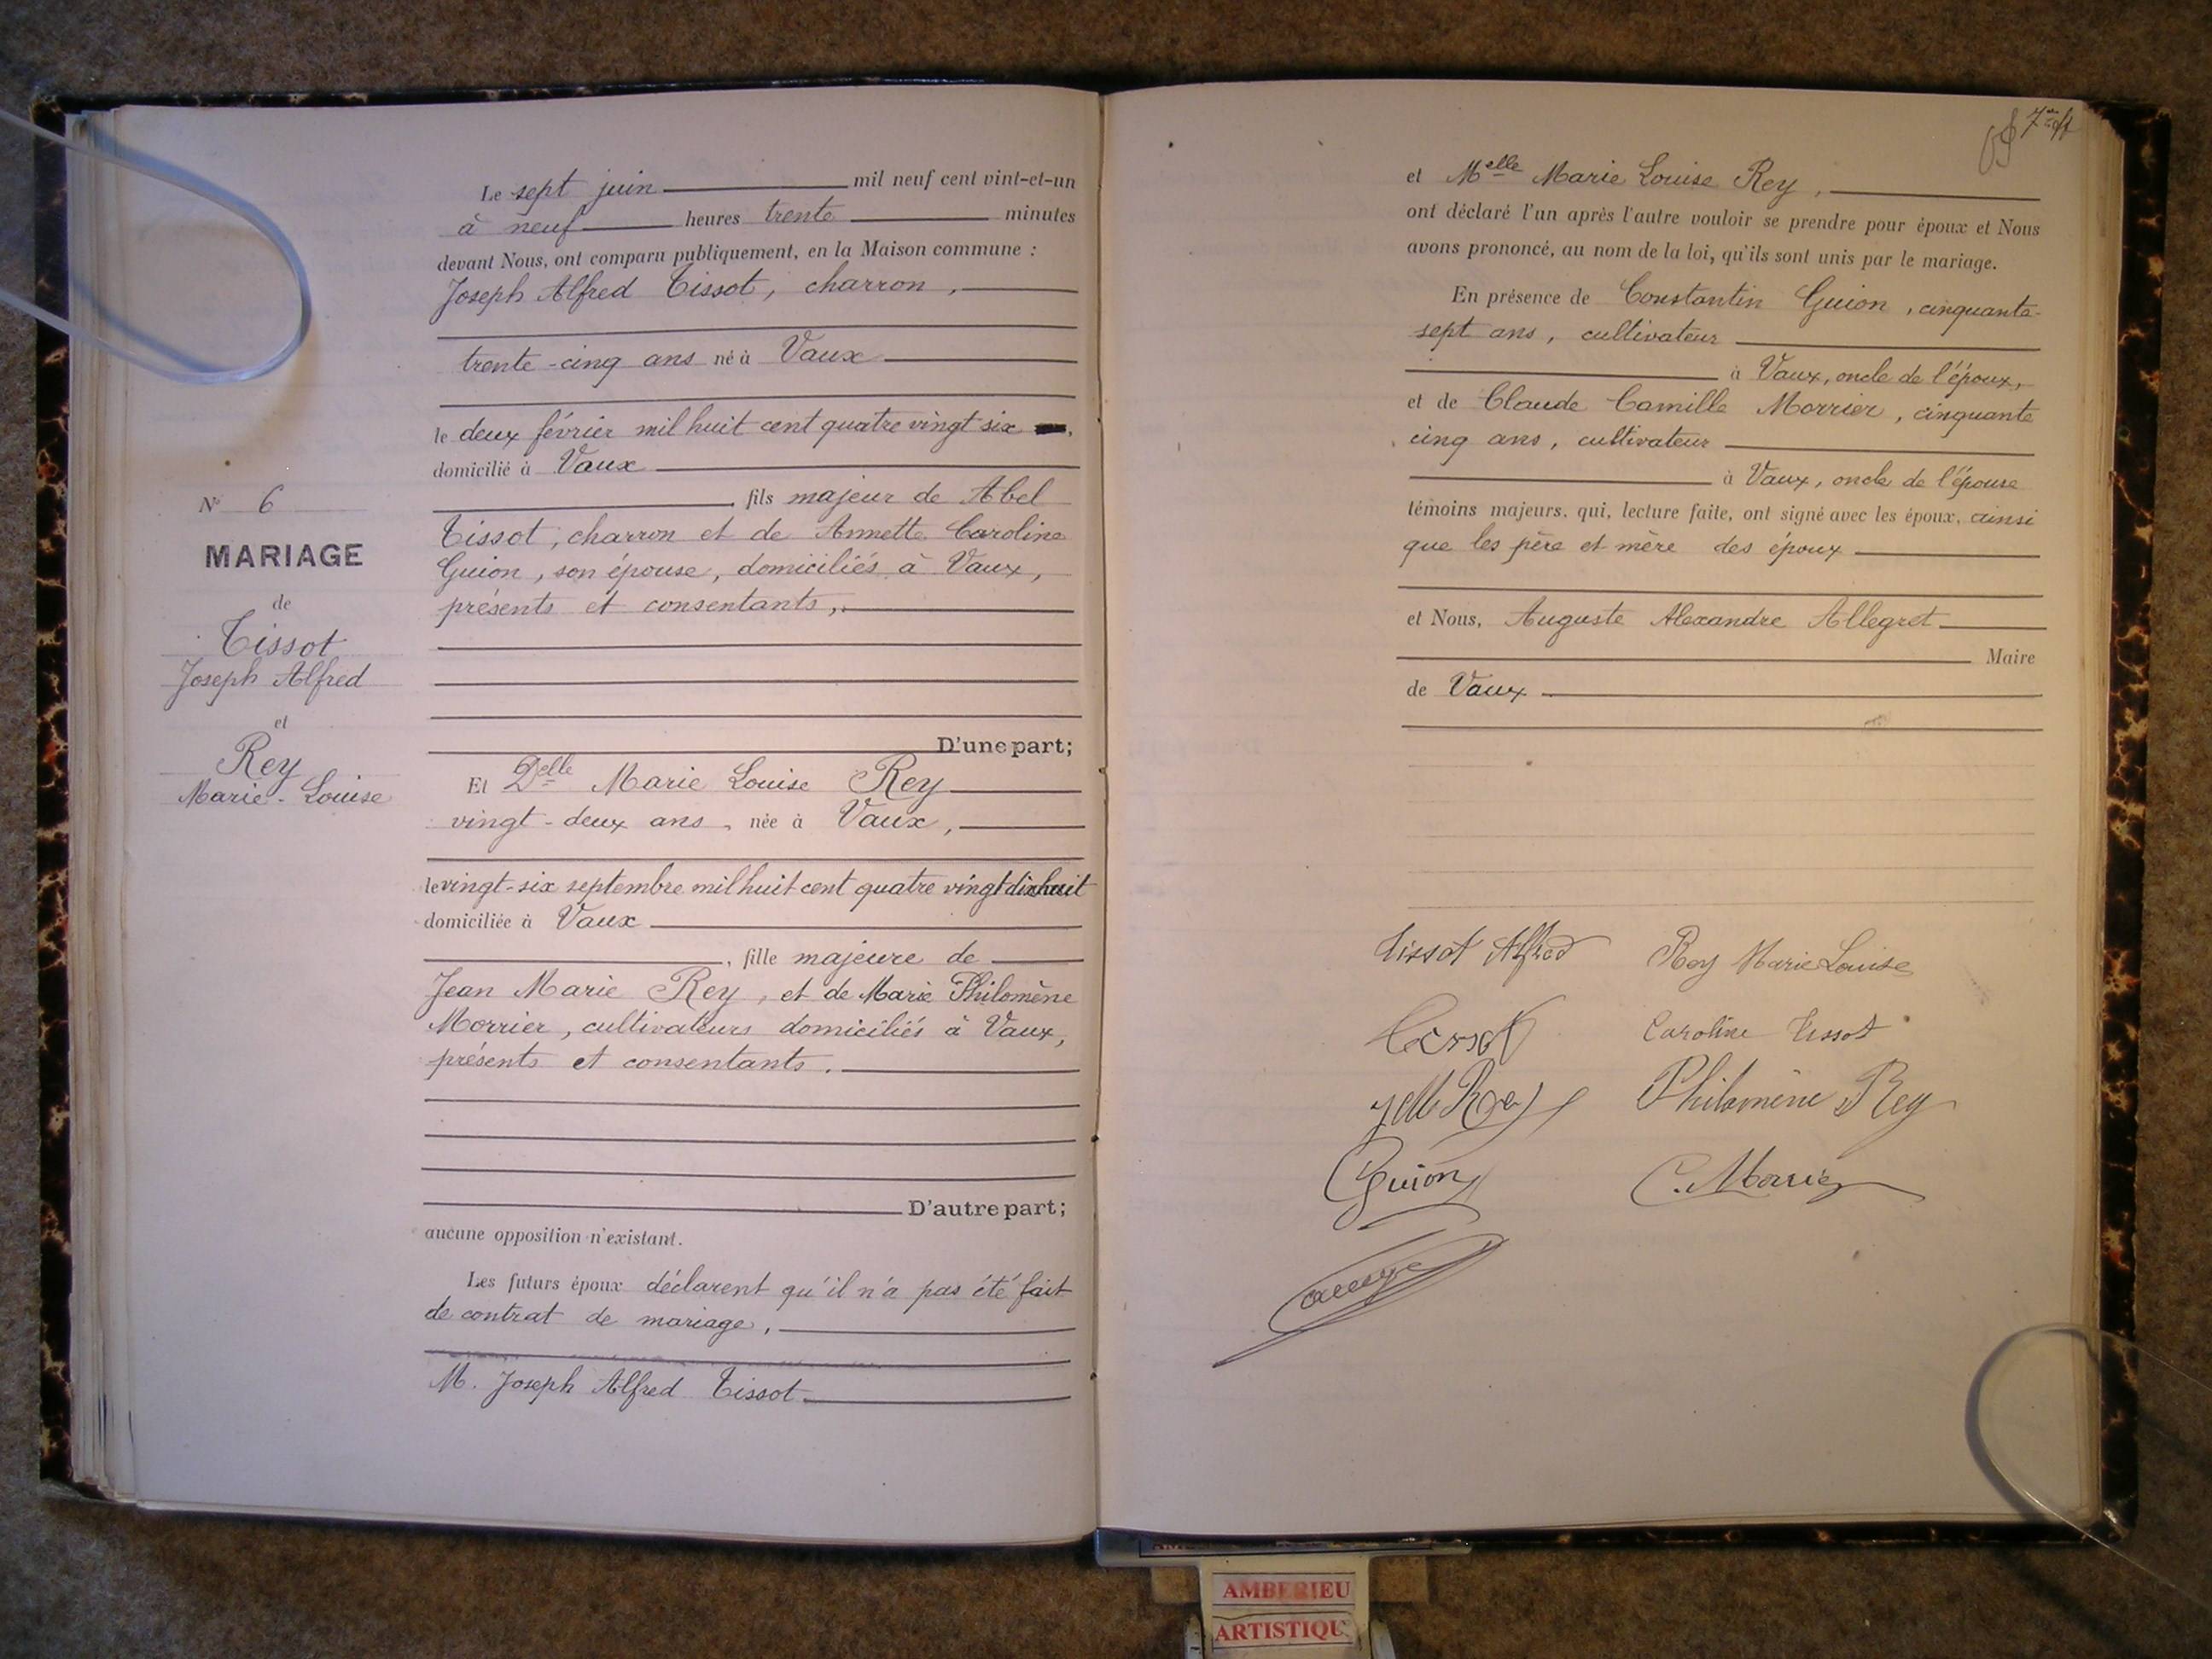 Le sept juin mil neuf cent vint-et-un
à neuf heures trente minutes
devant Nous, ont comparu publiquement, en la Maison commune :
Joseph Alfred Tissot, charron,
trente-cinq ans né à Vaux
le deux février mil huit cent quatre vingt six,
domicilié à Vaux
, fils majeur de Abel
Tissot, charron et de Annette Caroline
Guion, son épouse, domiciliés à Vaux,
présents et consentants,
D'une part;
Et Delle Marie Louise Rey
vingt-deux ans, née à Vaux,
le vingt-six septembre mil huit cent quatre vingt dix huit
domiciliée à Vaux
, fille majeure de
Jean Marie Rey, et de Marie Philomène
Morrier, cultivateurs domiciliés à Vaux,
présents et consentants.
D'autre part;
aucune opposition n'existant.
Les futurs époux déclarent qu'il n'a pas été fait
de contrat de mariage,
M. Joseph Alfred Tissot
N° 6
MARIAGE
de
Tissot
Joseph Alfred
et
Rey
Marie-Louise
et Melle Marie Louise Rey,
ont déclaré l'un après l'autre vouloir se prendre pour époux et Nous
avons prononcé, au nom de la loi, qu'ils sont unis par le mariage.
En présence de Constantin Guion, cinquante-
sept ans, cultivateur
à Vaux, oncle de l'époux,
et de Claude Camille Morrier, cinquante
cinq ans, cultivateur
à Vaux, oncle de l'épouse
témoins majeurs, qui, lecture faite, ont signé avec les époux, ainsi
que les père et mère des époux
et Nous, Auguste Alexandre Allegret
Maire
de Vaux
Tissot Alfred Rey Marie Louise
Caroline Tissot
JM Rey Philomène Rey
Guion C. Morrier
AMBERIEU
ARTISTIQU